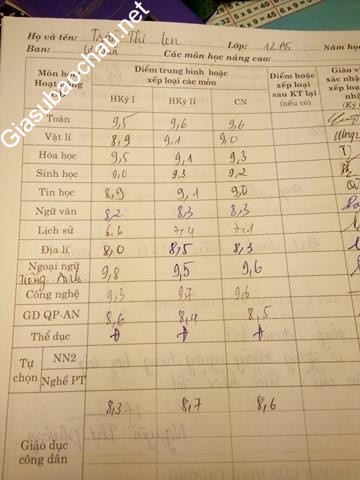 Họ và tên: Trần Thị Len Lớp: 12A5 Năm học
Ban: Các môn học nâng cao:
Môn học
Hoạt động
Điểm trung bình hoặc
xếp loại các môn
Điểm hoặc
xếp loại
sau KT lại
(nếu có)
Giáo v
xác nhậ
xếp loại
nhậ
(Ký
HKỳ I HKỳ II CN
Toán 9,5 9,6 9,6
Vật lí 8,9 9,1 9,0
Hóa học 9,5 9,1 9,3
Sinh học 9,0 9,3 9,2
Tin học 8,9 9,1 9,0
Ngữ văn 8,2 8,3 8,3
Lịch sử 6,6 7,4 7,1
Địa lí 8,0 8,5 8,3
Ngoại ngữ 9,8 9,5 9,6
Tiếng Anh
Công nghệ 9,3 9,7 9,6
GD QP-AN 8,6 8,4 8,5
Thể dục Đ Đ Đ
Tự
chọn
NN2
Nghề PT
8,3 8,7 8,6
Giáo dục
công dân
Giasubaochau.net